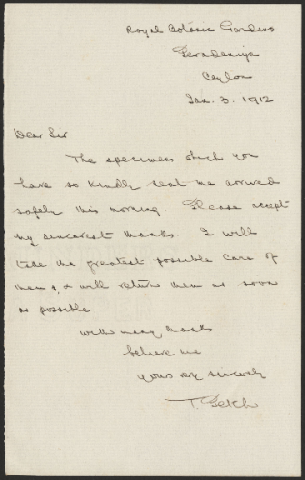 Royal Botanic Gardens
Peradeniya
Ceylon
Jan. 3. 1912
Dear Sir
The specimens which you
have so kindly sent me arrived
safely this morning. Please accept
my sincerest thanks. I will
take the greatest possible care of
them, & will return them as soon
as possible
With many thanks
believe me
yours very sincerely
T. Petch